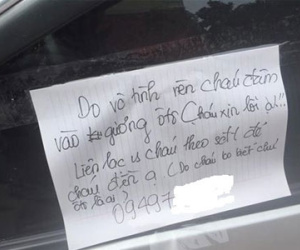 Do vô tình nên cháu đâm
vào gương ôtô Cháu xin lỗi ạ!!
Liên lạc vs cháu theo sđt để
cháu đền ạ (Do cháu ko biết chú
ôtô là ai)
09497